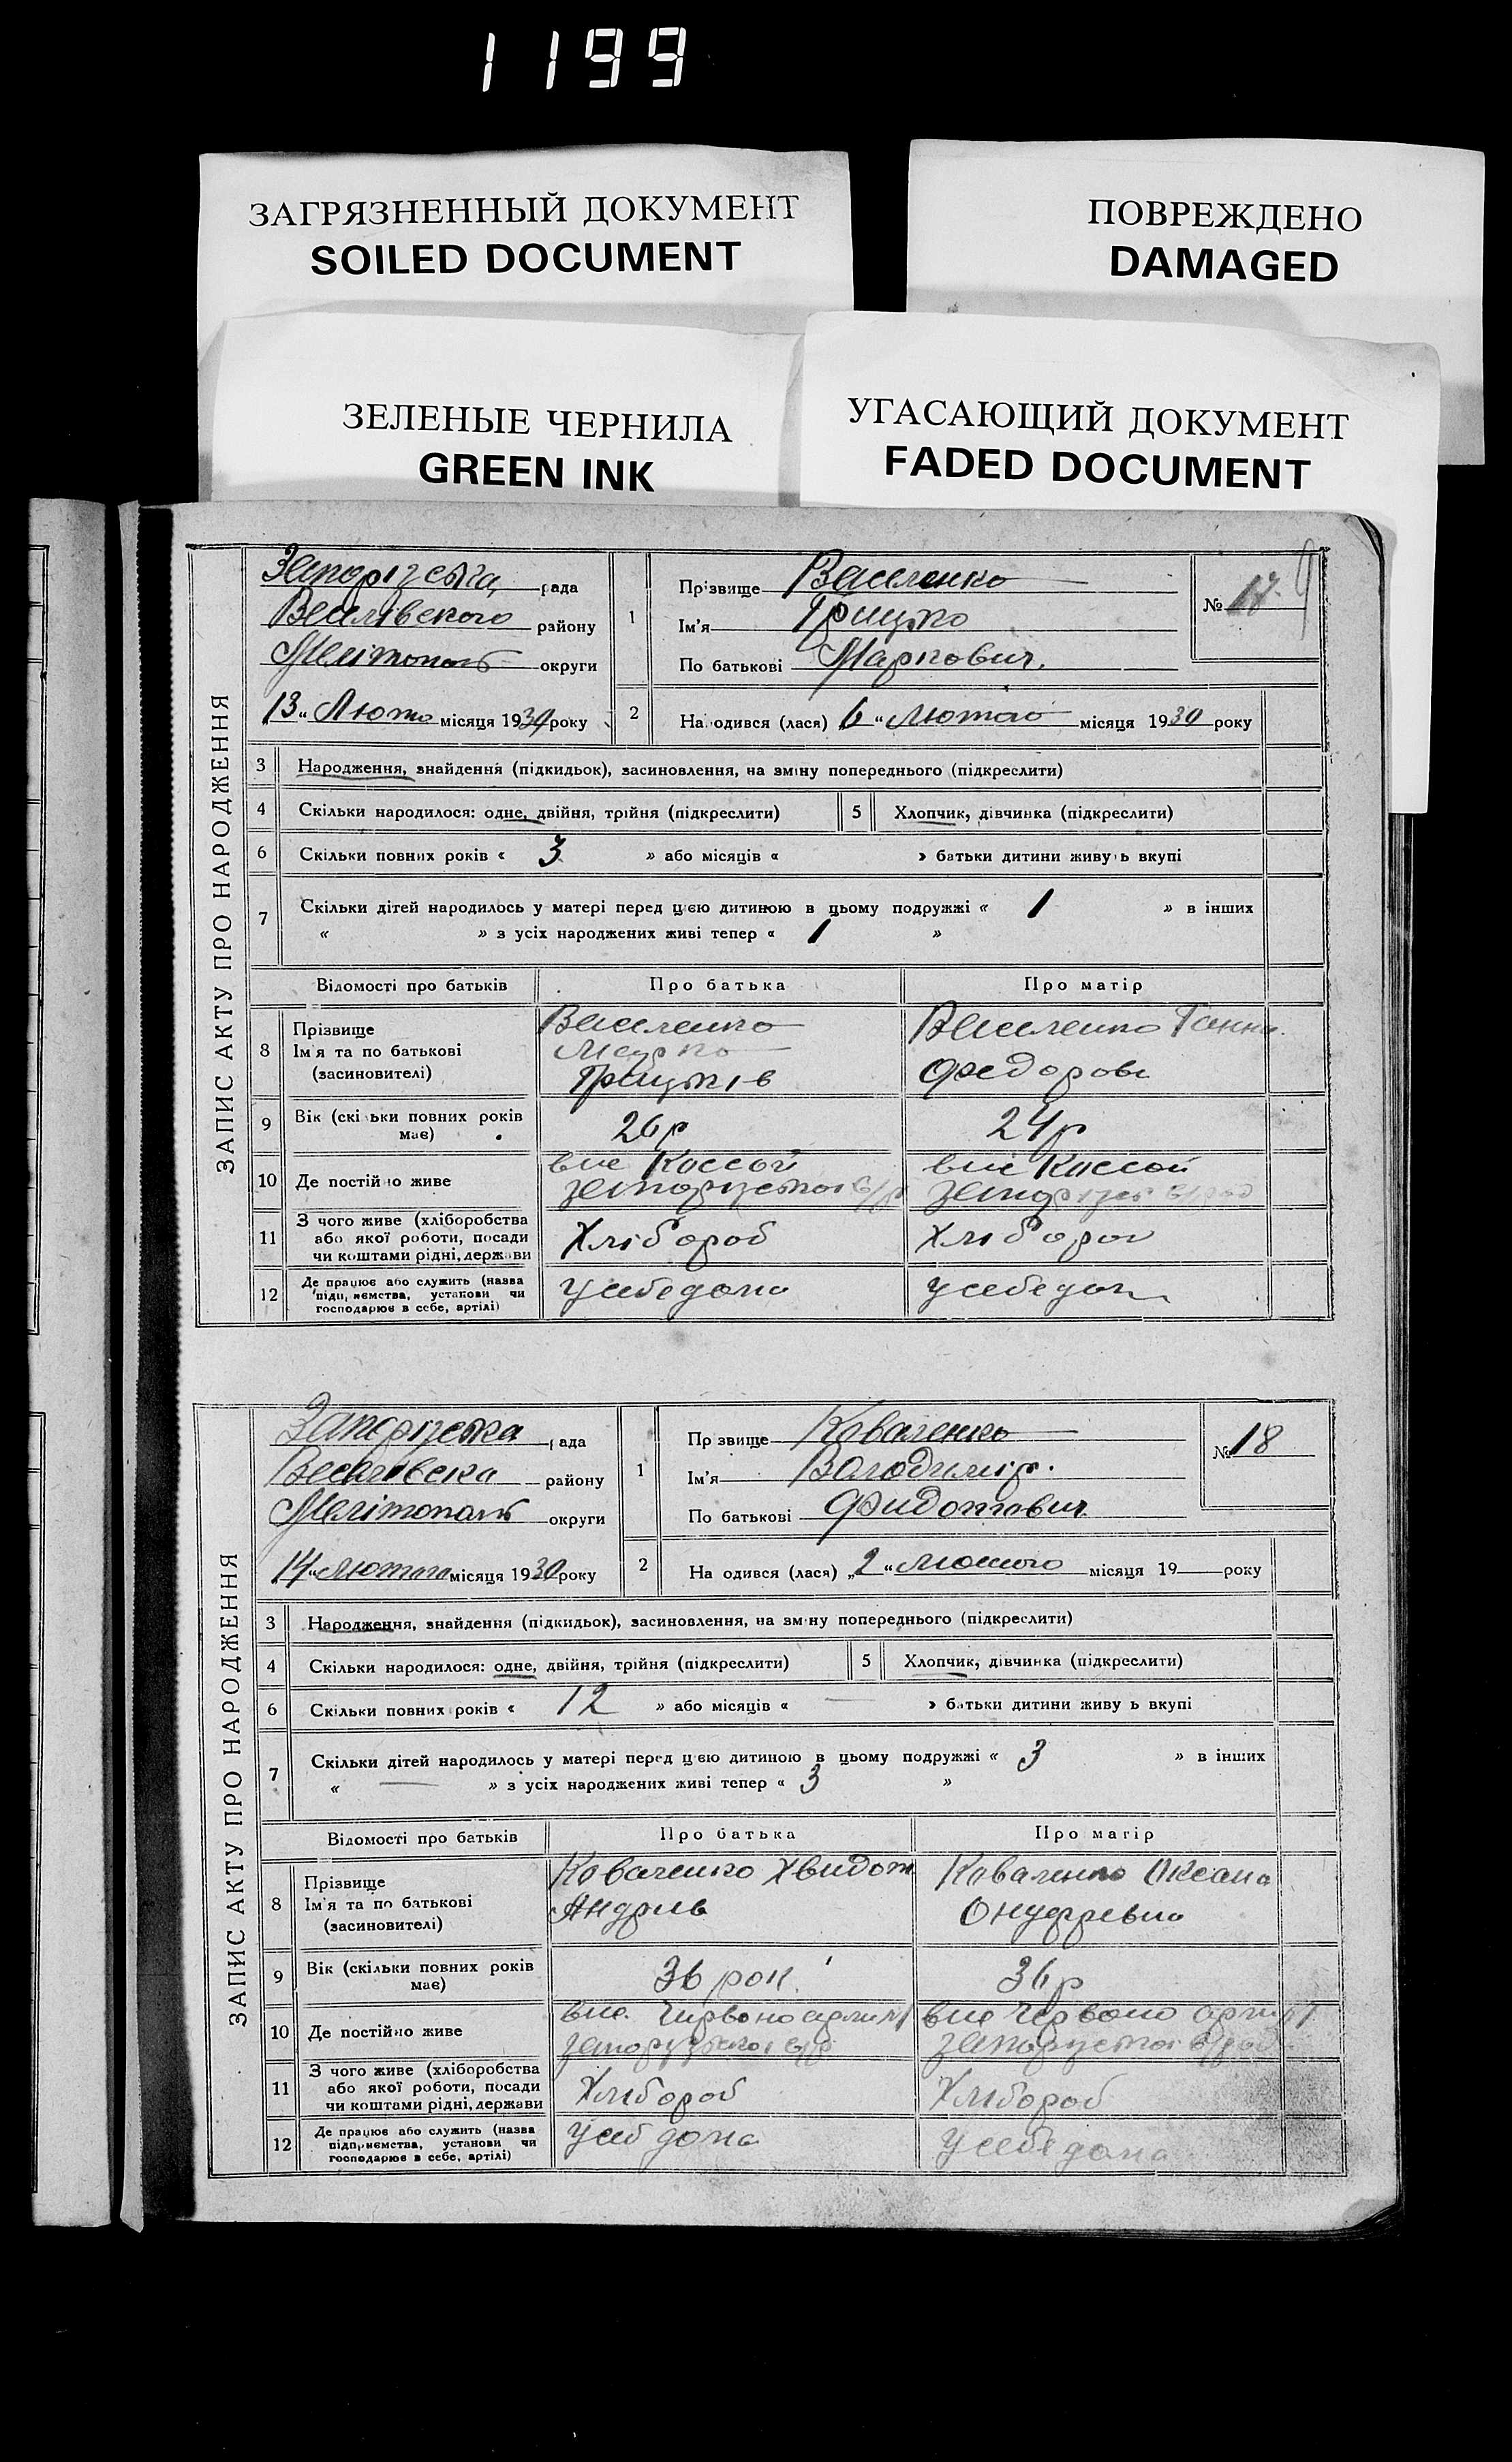 1199
ЗАГРЯЗНЕННЫЙ ДОКУМЕНТ
SOILED DOCUMENT
ПОВРЕЖДЕНО
DAMAGED
ЗЕЛЕНЫЕ ЧЕРНИЛА
GREEN INK
УГАСАЮЩИЙ ДОКУМЕНТ
FADED DOCUMENT
ЗАПИС АКТУ ПРО НАРОДЖЕННЯ
Запорізська рада
Веселівского району
Мелітополь округи
13 „ Люто місяця 1930 року
1 Прізвище Василенко
Ім’я Грицько
По батькові Маркович.
№ 17.
2 Народився (лася) 6 “ Лютого місяця 1930 року
3 Народження, знайдення (підкидьок), засиновлення, на зміну попереднього (підкреслити)
4 Скільки народилося: одне, двійня, трійня (підкреслити) 5 Хлопчик, дівчинка (підкреслити)
6 Скільки повних років « 3 » або місяців « » батьки дитини живуть вкупі
7 Скільки дітей народилось у матері перед цією дитиною в цьому подружжі « 1 » в інших
« » з усіх народжених живі тепер « 1 »
Відомості про батьків Про батька Про матір
8 Прізвище Василенко Василенко Ганна
Ім’я та по батькові Марко Федорова
(засиновителі) Грицьків
9 Вік (скільки повних років має) 26 р 24 р
10 Де постійно живе вис Коссой вис Коссой
11 З чого живе (хліборобства Хлібороб
або якої роботи, посади
чи коштами рідні, держави
12 Де працює або служить (назва у себе дома у себе дом
підприємства, установи чи
господарює в себе, артілі)
ЗАПИС АКТУ ПРО НАРОДЖЕННЯ
Запорізька рада
Веселівська району
Мелітополь округи
14 “ Лютого місяця 1930 року
1 Прізвище Коваленко
Ім’я Володимір.
По батькові Фидотович
№ 18
2 Народився (лася) „2 “ Лютого місяця 19 року
3 Народження, знайдення (підкидьок), засиновлення, на зміну попереднього (підкреслити)
4 Скільки народилося: одне, двійня, трійня (підкреслити) 5 Хлопчик, дівчинка (підкреслити)
6 Скільки повних років « 12 » або місяців « — » батьки дитини живуть вкупі
7 Скільки дітей народилось у матері перед цією дитиною в цьому подружжі « 3 » в інших
« — » з усіх народжених живі тепер « 3 »
Відомості про батьків Про батька Про матір
8 Прізвище Коваленко Хвидот Коваленко Оксана
Ім’я та по батькові Андрив Онуфревна
(засиновителі)
9 Вік (скільки повних років має) 36 рок 36 р
10 Де постійно живе
11 З чого живе (хліборобства Хлібороб Хлібороб
або якої роботи, посади
чи коштами рідні, держави
12 Де працює або служить (назва у себ дома у себе дома
підприємства, установи чи
господарює в себе, артілі)